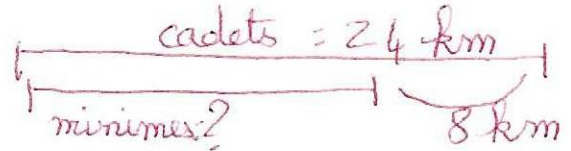 cadets = 24 km
minimes ? 8 km